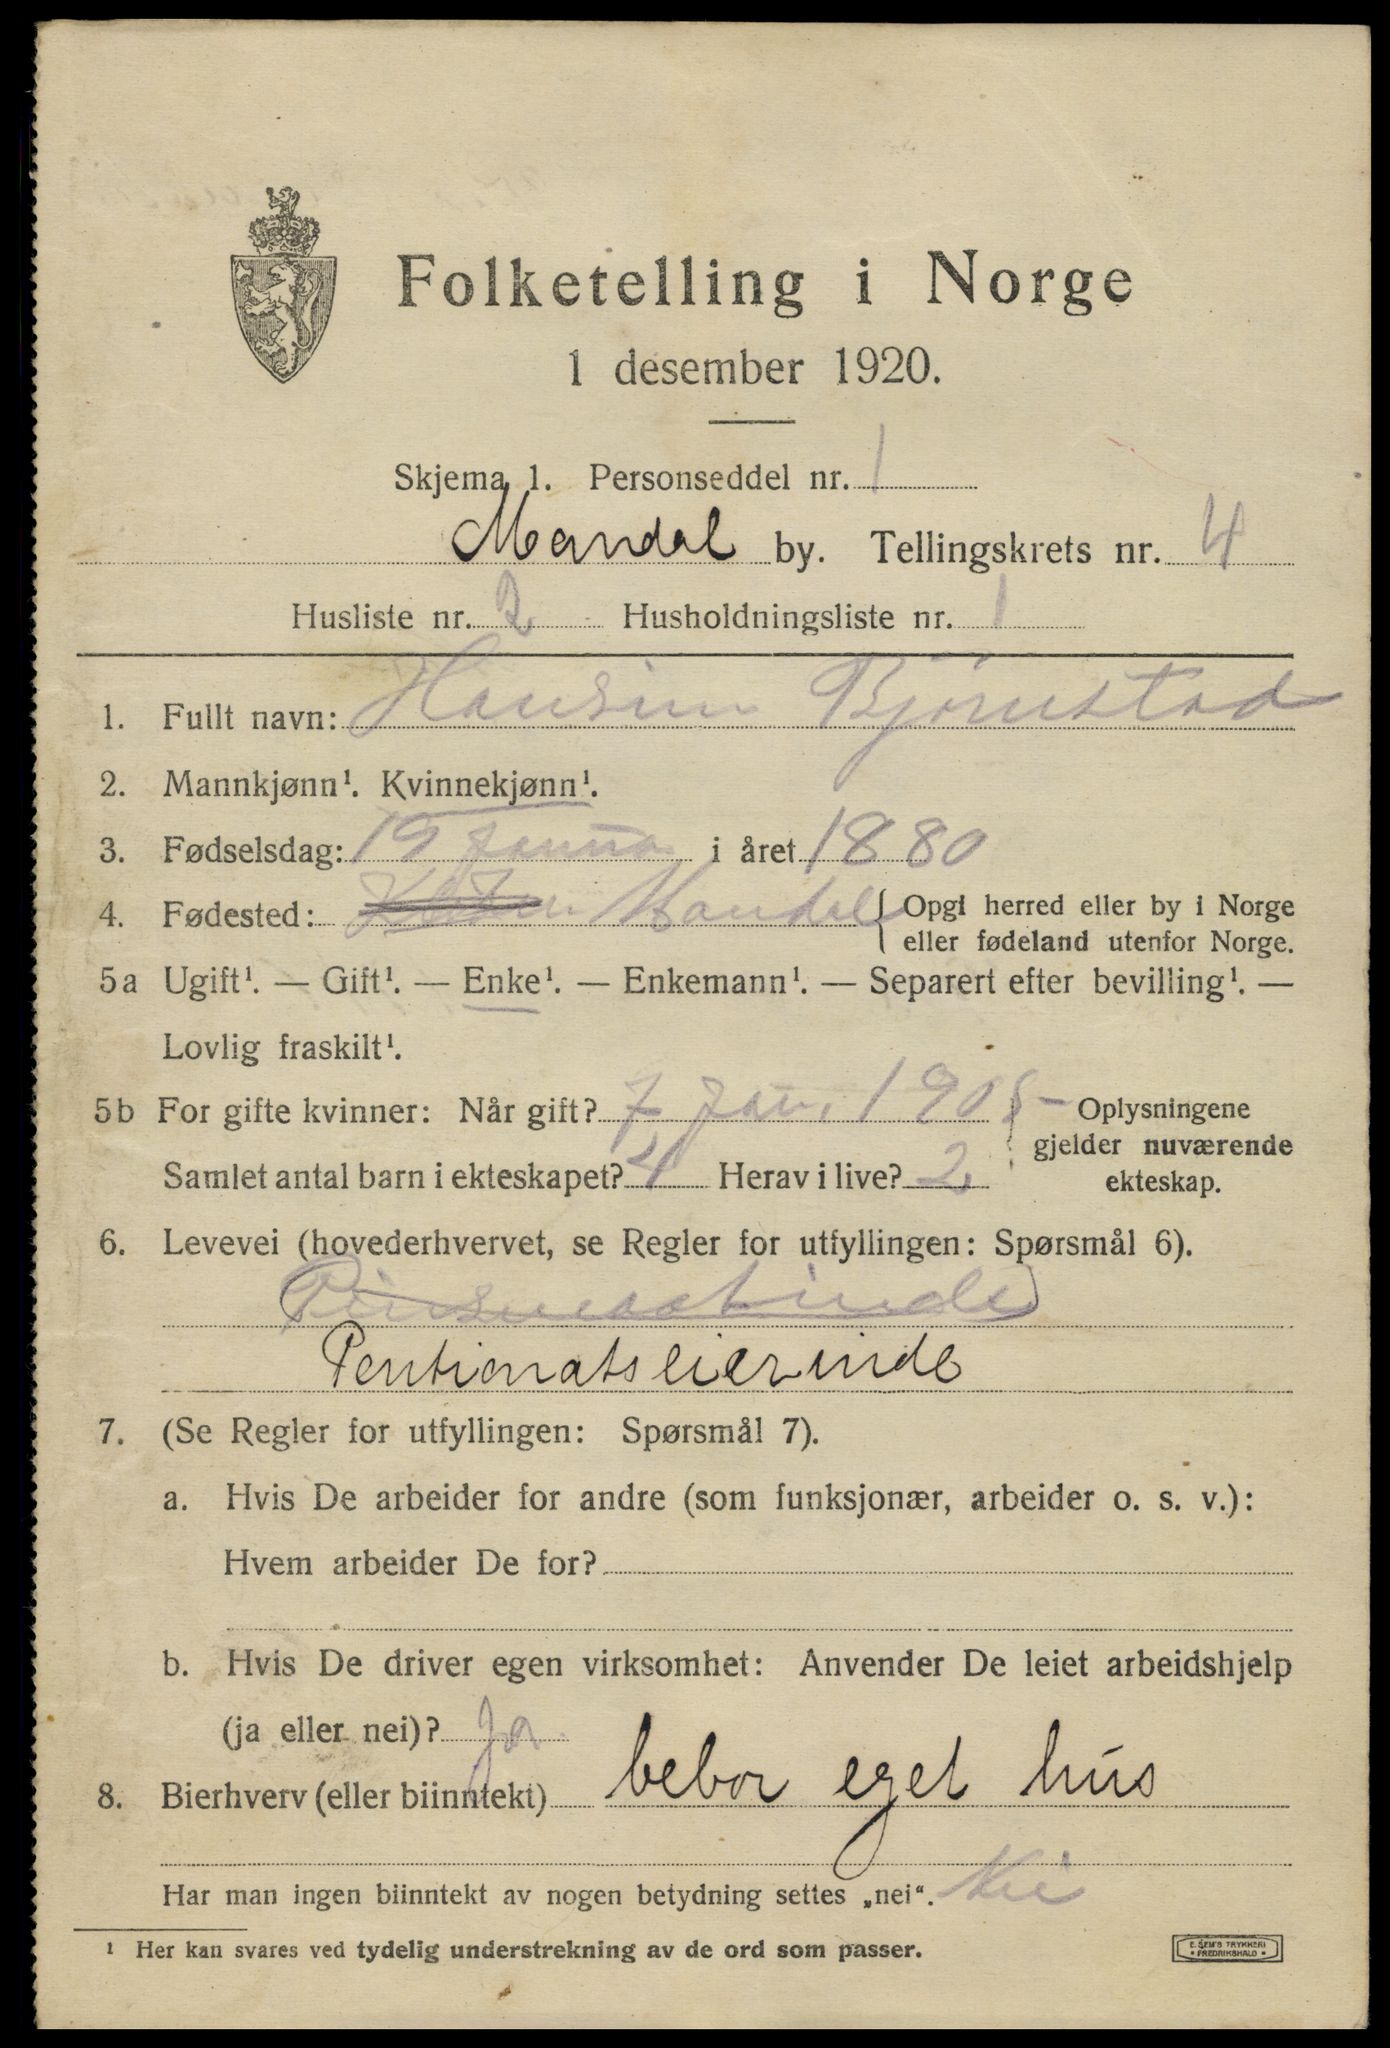 Folketelling i Norge
1 desember 1920.
Skjema 1. Personseddel nr. 1
Mandal by. Tellingskrets nr. 4
Husliste nr. 2 Husholdningsliste nr. 1
1. Fullt navn: Hansine Bjørnstad
2. Mannkjønn¹. Kvinnekjønn¹.
3. Fødselsdag: 19 Januar i året 1880
4. Fødested: Mandal { Opgi herred eller by i Norge
eller fødeland utenfor Norge.
5a Ugift¹. — Gift¹. — Enke¹. — Enkemann¹. — Separert efter bevilling¹. —
Lovlig fraskilt¹.
5b For gifte kvinner: Når gift? 7 Jan. 1905 Oplysningene
gjelder nuværende
Samlet antal barn i ekteskapet? 4 Herav i live? 2 ekteskap.
6. Levevei (hovederhvervet, se Regler for utfyllingen: Spørsmål 6).
Pentionatseierinde
7. (Se Regler for utfyllingen: Spørsmål 7).
a. Hvis De arbeider for andre (som funksjonær, arbeider o. s. v.):
Hvem arbeider De for?
b. Hvis De driver egen virksomhet: Anvender De leiet arbeidshjelp
(ja eller nei)? Ja
8. Bierhverv (eller biinntekt) bebor eget hus
Har man ingen biinntekt av nogen betydning settes „nei“. Nei
¹ Her kan svares ved tydelig understrekning av de ord som passer.
E. SEM'S TRYKKERI
• FREDRIKSHALD •